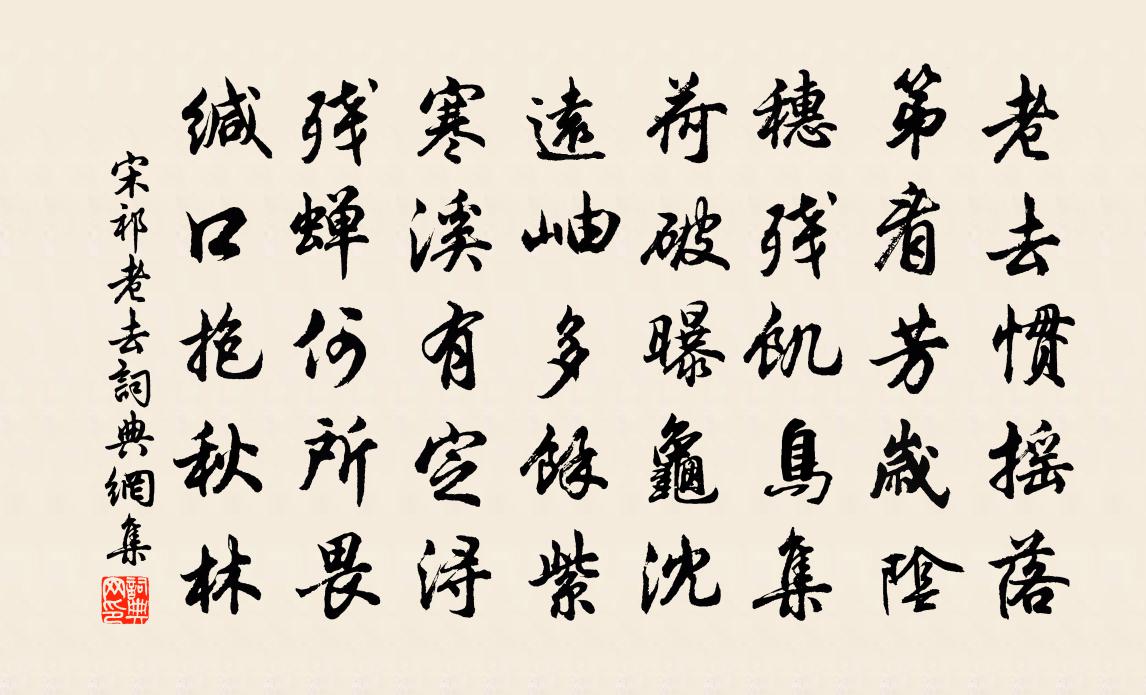 老去惯摇落
第看芳岁阴
穗残饥鸟集
荷破曝龜沈
遠岫多餘紫
寒溪有定浔
残蝉何所畏
缄口抱秋林
宋祁老去詞典網集
詞典網印